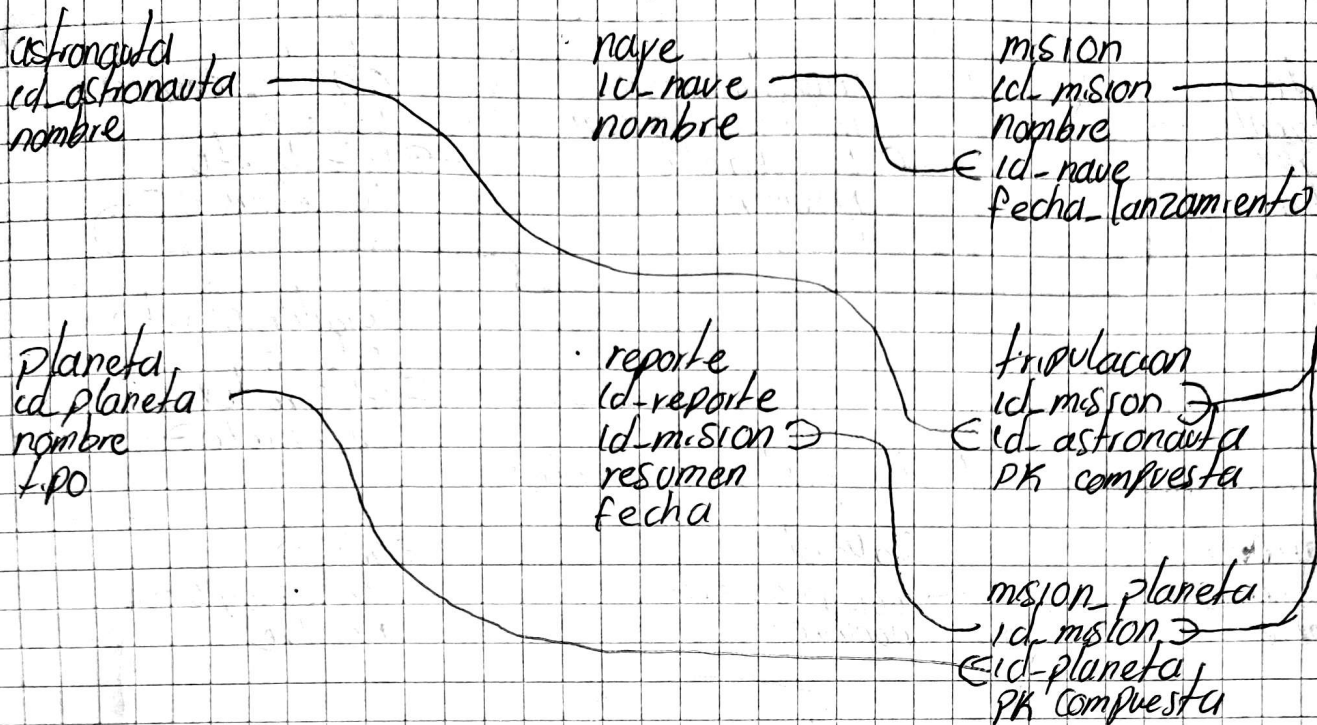 astronauta
id_astronauta
nombre
nave
id_nave
nombre
mision
id_mision
nombre
id_nave
fecha_lanzamiento
planeta
id_planeta
nombre
tipo
reporte
id_reporte
id_mision
resumen
fecha
tripulacion
id_mision
id_astronauta
PK compuesta
mision_planeta
id_mision
id_planeta
PK compuesta